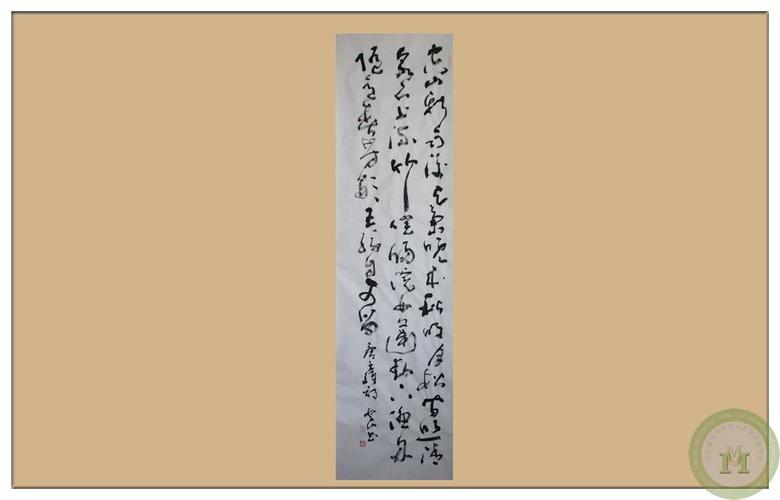 空山新雨後天氣晚來秋明月松間照清
泉石上流竹喧歸浣女蓮動下漁舟
隨意春芳歇王孫自可留 唐王維詩 書